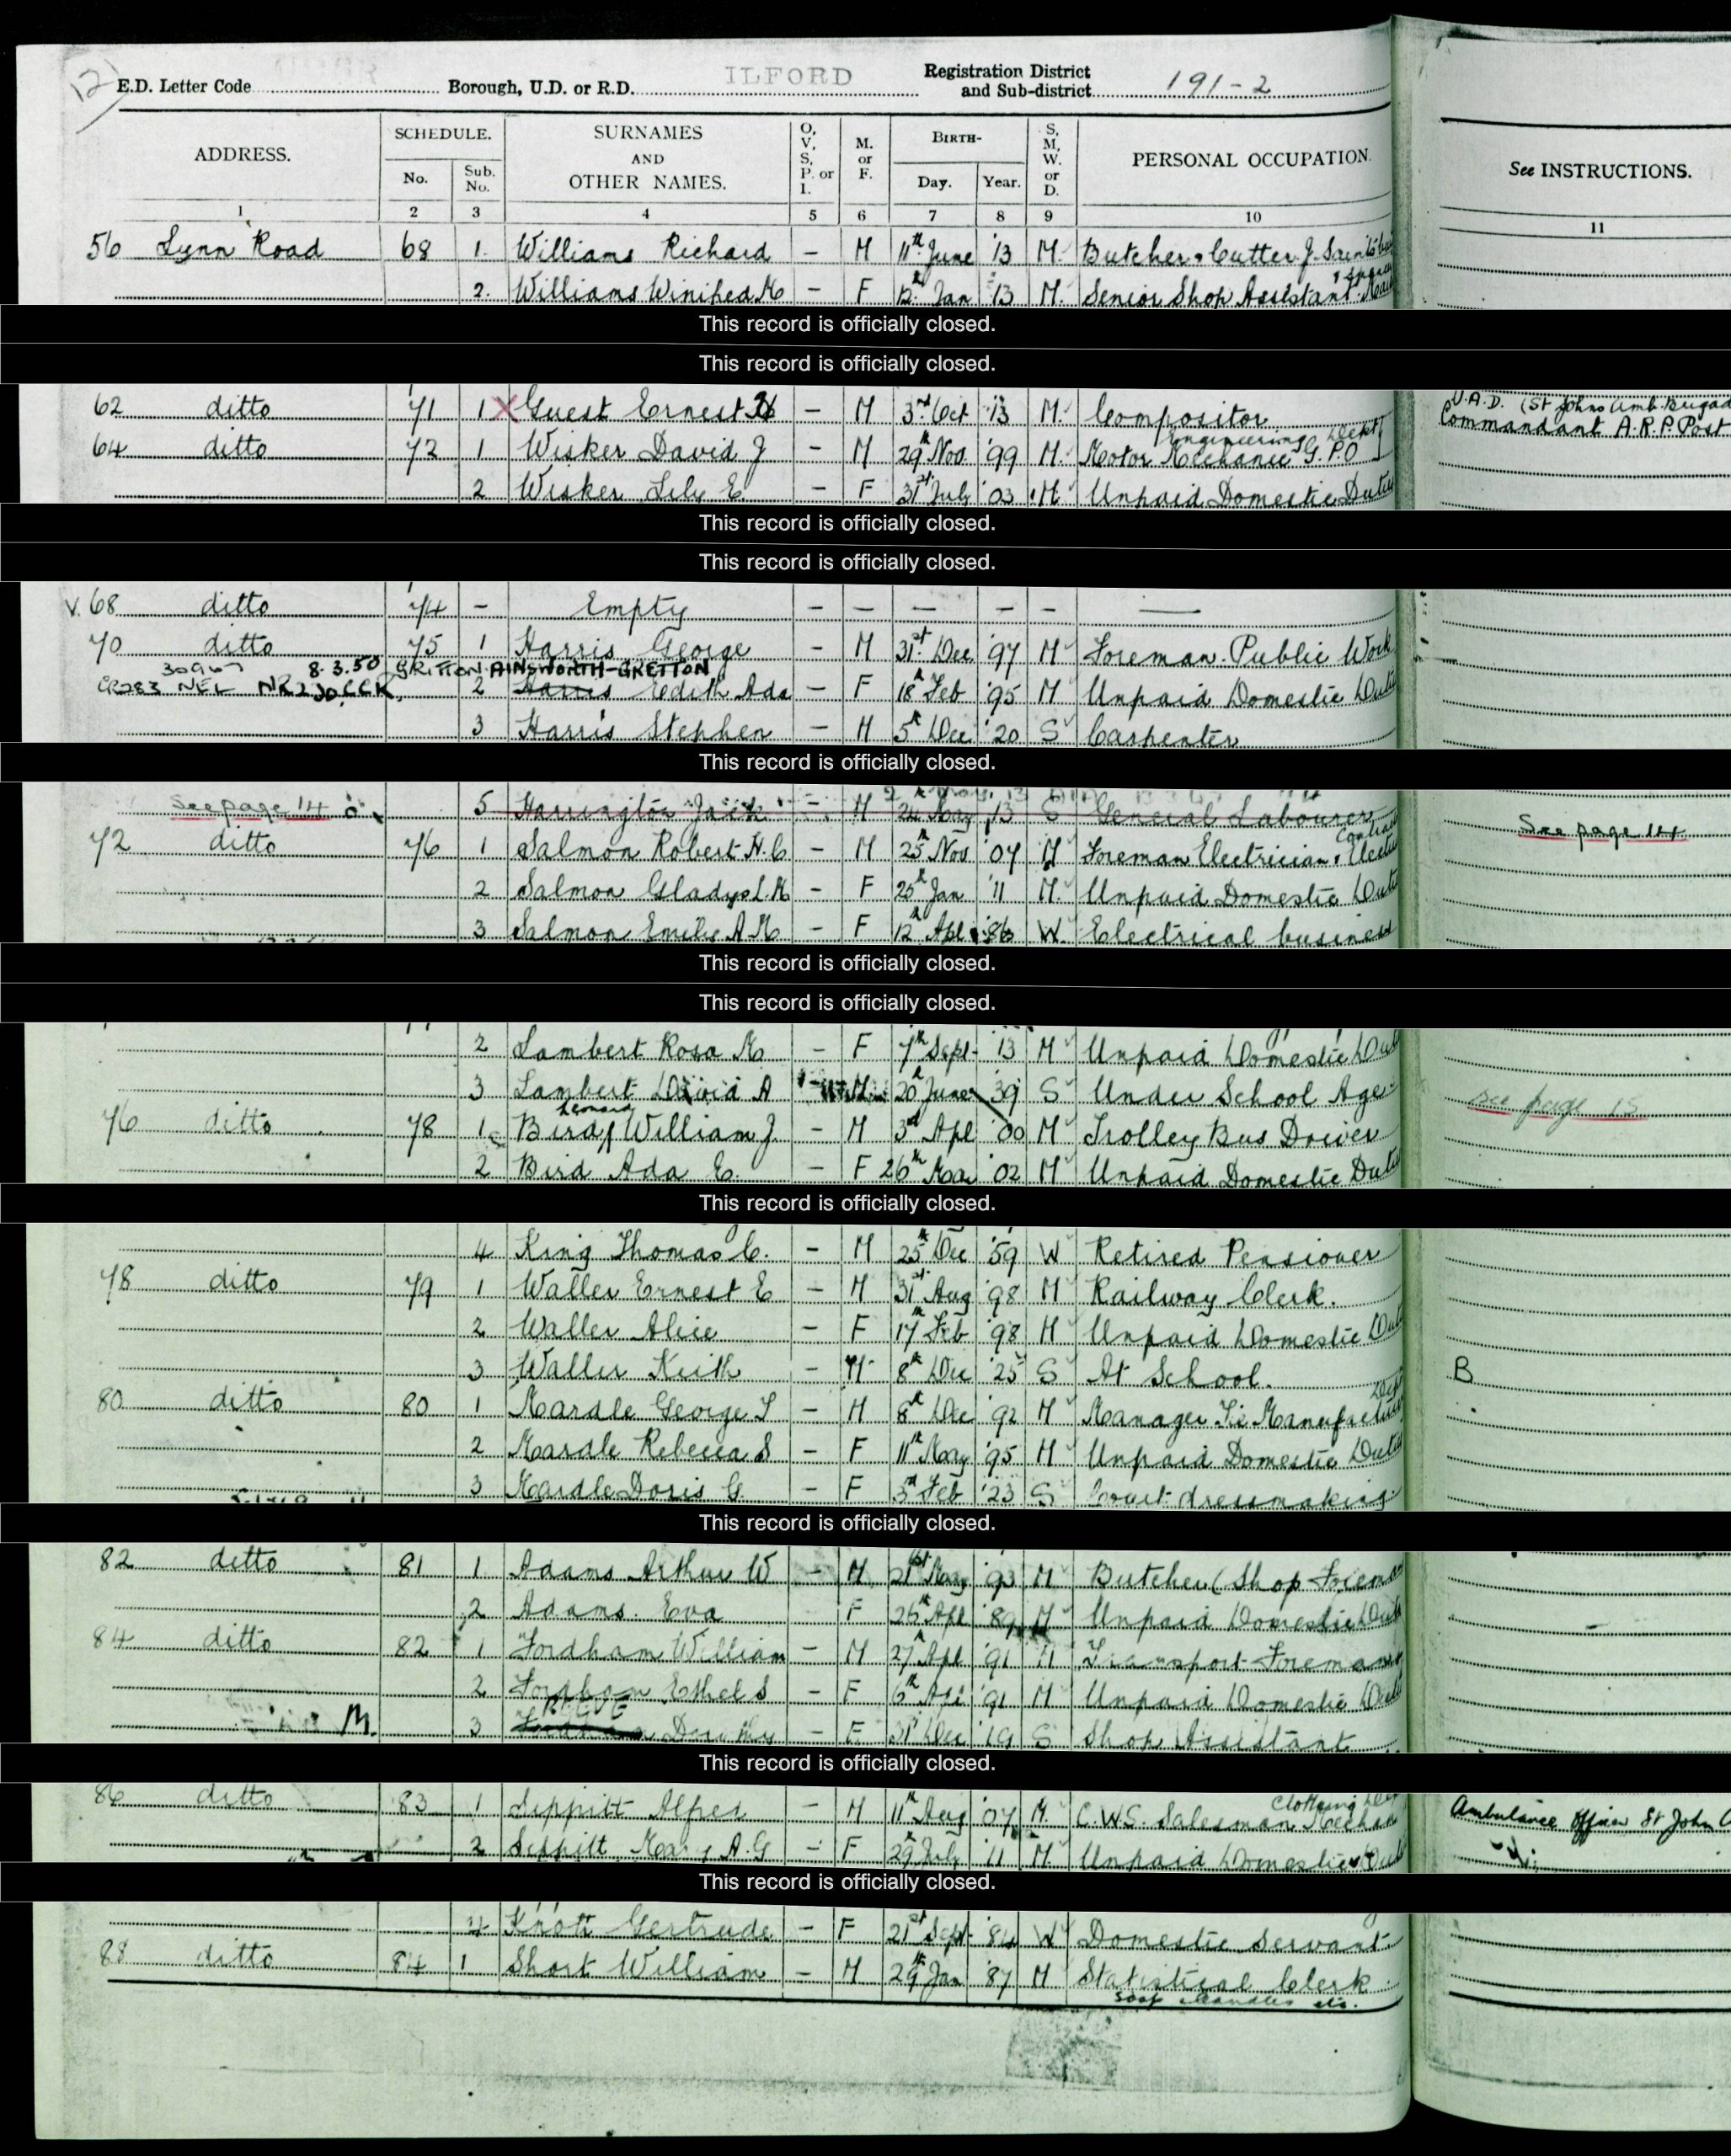 12
E.D. Letter Code Borough, U.D. or R.D. ILFORD Registration District and Sub-district 191-2
ADDRESS. SCHEDULE. No. Sub. No. SURNAMES AND OTHER NAMES. O, V, S, P. or I. M. or F. BIRTH- Day. Year. S, M, W. or D. PERSONAL OCCUPATION. See INSTRUCTIONS.
1 2 3 4 5 6 7 8 9 10 11
56 Lynn Road 68 1. Williams Richard - M 11th June '13 M. Butcher Cutter J.
2. Williams Winifred M - F 12th Jan '13 M. Senior Shop Assistant
This record is officially closed.
This record is officially closed.
62 ditto 71 1 X Guest Ernest - M 3rd Oct '13 M. Compositor V.A.D. (St Johns Amb. Brigad
Commandant A.R.P. Post
64 ditto 72 1 Wisker David J - M 29th Nov '99 M. Motor Mechanic Engineering Dept G.P.O
2 Wisker Lily E. - F 31st July '03 M. Unpaid Domestic Duties
This record is officially closed.
This record is officially closed.
V. 68 ditto 74 - Empty - - - - -
70 ditto 75 1 Harris George - M 31st Dec '97 M Foreman Public Work
8.3.50 GRITTON AINSWORTH-GRETTON
CR283 NEL 2 Harris Edith Ada - F 18th Feb '95 M Unpaid Domestic Duties
3 Harris Stephen - M 5th Dec '20 S Carpenter
This record is officially closed.
See page 14 5 Harrington Jack - M 24 May '13 S General Labourer See page 14
72 ditto 76 1 Salmon Robert H. C - M 25th Nov '07 M Foreman Electrician
2 Salmon Gladys L. M - F 25th Jan '11 M. Unpaid Domestic Duties
3 Salmon Emily A. M - F 12th Apl '86 W. Electrical business
This record is officially closed.
This record is officially closed.
2 Lambert Rosa M - F 7th Sept '13 M Unpaid Domestic Dut
3 Lambert David A M 20th June '39 S Under School Age see page 15
76 ditto 78 1 Bird Leonard William J. - M 3rd Apl '00 M Trolley Bus Driver
2 Bird Ada E. - F 26th Mar '02 M Unpaid Domestic Duties
This record is officially closed.
4 King Thomas C. - M 25th Dec '59 W Retired Pensioner
78 ditto 79 1 Waller Ernest E - M 31st Aug '98 M Railway Clerk.
2 Waller Alice - F 17th Feb '98 M Unpaid Domestic Dut
3 Waller Keith - M 8th Dec '25 S At School. B
80 ditto 80 1 Mardle George T - M 8th Dec '92 M Manager
2 Mardle Rebecca S - F 11th May '95 M Unpaid Domestic Duties
3 Mardle Doris G. - F 3rd Feb '23 S Court dressmaking
This record is officially closed.
82 ditto 81 1 Adams Arthur W - M 21st May '93 M Butcher (Shop Forema
2 Adams Eva F 25th Apl '89 M Unpaid Domestic Dut
84 ditto 82 1 Fordham William - M 27th Apl '91 M Transport Foreman
2 Fordham Ethel S - F 6th '91 M Unpaid Domestic Dut
M. REEVE
3 Fordham Dorothy - F 31st Dec '19 S Shop Assistant
This record is officially closed.
86 ditto 83 1 Sippitt Alfred - M 11th Aug '07 M. C.W.S. Salesman Clothing Ambulance Officer St John
2 Sippitt Mary A.G - F 29th July '11 M. Unpaid Domestic Dut
This record is officially closed.
4 Knott Gertrude - F 21st Sept '84 W Domestic Servant.
88 ditto 84 1 Short William - M 29th Jan '87 M Statistical Clerk
Soap Candles etc.